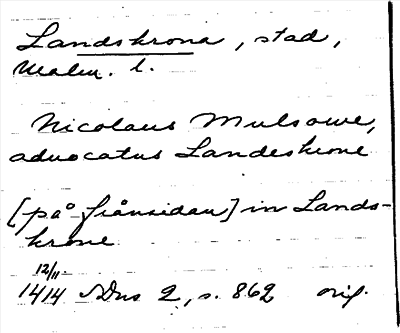 Landskrona, stad,
Malm. l.
Nicolaus Mulsowe,
advocatus Landeskrone
[på frånsidan] in Lands-
krone
12/11
1414 SDns 2, s. 862 orig.